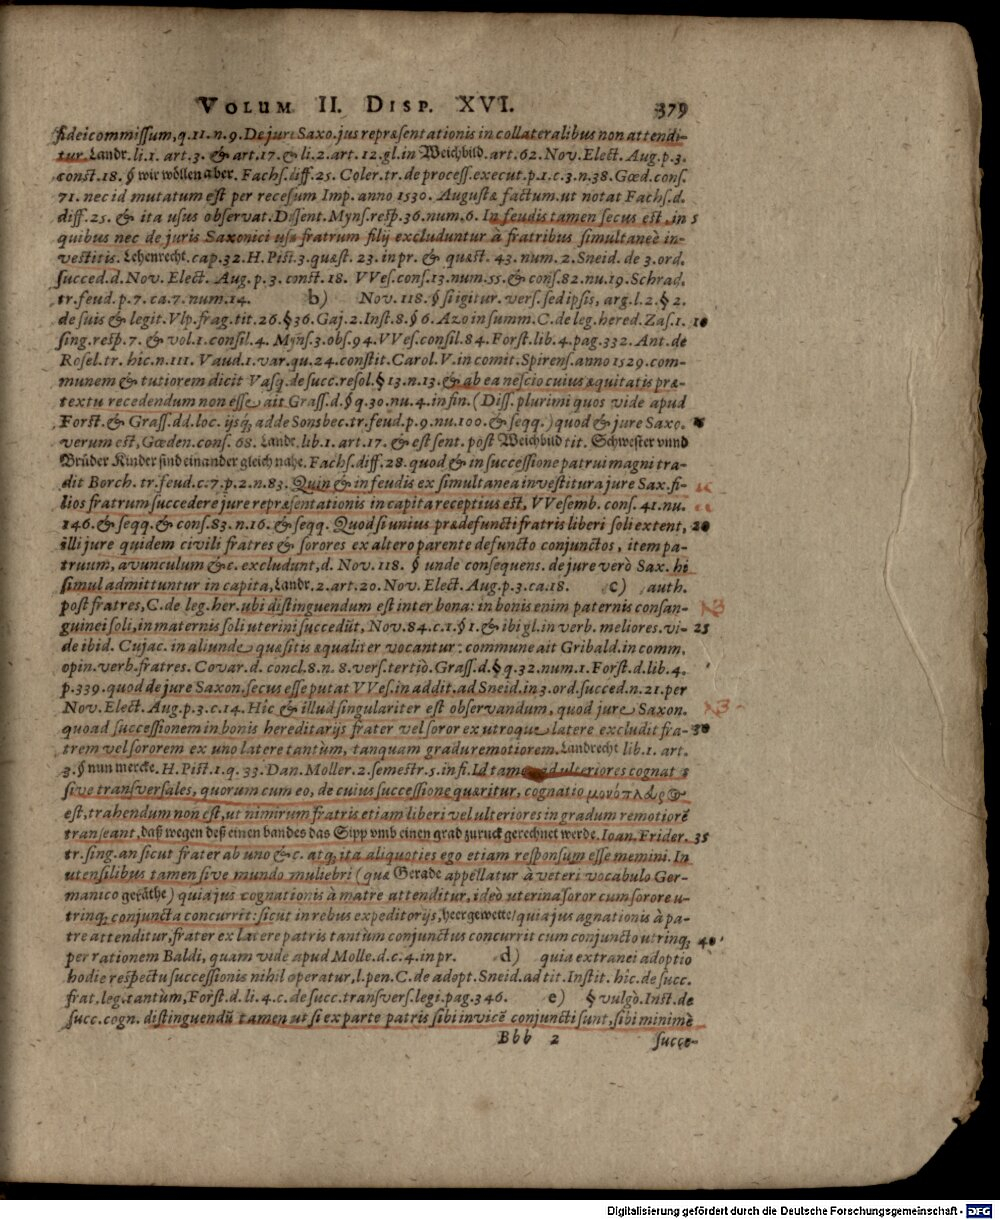 VOLUM II. DISP. XVI. 379
fideicommissum, q. 11. n. 9. De jure Saxo. jus repræsentationis in collateralibus non attendi-
tur. Landr. li. 1. art. 3. & art. 17. & li. 2. art. 12. gl. in Weichbild. art. 62. Nov. Elect. Aug. p. 3.
const. 18. § wir wöllen aber. Fachs. diff. 25. Coler. tr. de process. execut. p. 1. c. 3. n. 38. Gœd. cons.
71. nec id mutatum est per recesum Imp. anno 1530. Augustæ factum. ut notat Fachs. d.
diff. 25. & ita usus observat. Dissent. Myns. resp. 36. num. 6. In feudis tamen secus est, in 5
quibus nec de juris Saxonici usu fratrum filij excluduntur à fratribus simultaneè in-
vestitis. Lehenrecht. cap. 32. H. Pist. 3. quæst. 23. in pr. & quæst. 43. num. 2. Sneid. de 3. ord.
succed. d. Nov. Elect. Aug. p. 3. const. 18. VVes. cons. 13. num. 55. & cons. 82. nu. 19. Schrad.
tr. feud. p. 7. ca. 7. num. 14. b) Nov. 118. § si igitur. vers. sed ipsis, arg. l. 2. § 2.
de suis & legit. Vlp. frag. tit. 26. § 36. Gaj. 2. Inst. 8. § 6. Azo in summ. C. de leg. hered. Zas. 1. 10
sing. resp. 7. & vol. 1. consil. 4. Myns. 3. obs. 94. VVes. consil. 84. Forst. lib. 4. pag. 332. Ant. de
Rosel. tr. hic. n. 111. Vaud. 1. var. qu. 24. constit. Carol. V. in comit. Spirens. anno 1529. com-
munem & tutiorem dicit Vasq. de succ. resol. § 13. n. 13. & ab ea nescio cuius æquitatis præ-
textu recedendum non esse ait Grass. d. § q. 30. nu. 4. in fin. (Diss. plurimi quos vide apud
Forst. & Grass. dd. loc. ijsq; adde Sonsbec. tr. feud. p. 9. nu. 100. & seqq.) quod & jure Saxo.
verum est, Gœden. cons. 68. Landr. lib. 1. art. 17. & est sent. post Weichbild tit. Schwester vnnd
Brüder Kinder sind einander gleich nahe. Fachs. diff. 28. quod & in successione patrui magni tra-
dit Borch. tr. feud. c. 7. p. 2. n. 83. Quin & in feudis ex simultanea investitura jure Sax. fi-
lios fratrum succedere jure repræsentationis in capita receptius est, VVesemb. cons. 41. nu.
146. & seqq. & cons. 83. n. 16. & seqq. Quod si unius prædefuncti fratris liberi soli extent, 20
illi jure quidem civili fratres & sorores ex altero parente defuncto conjunctos, item pa-
truum, avunculum &c. excludunt, d. Nov. 118. § unde consequens. de jure verò Sax. hi
simul admittuntur in capita, Landr. 2. art. 20. Nov. Elect. Aug. p. 3. ca. 18. c) auth.
post fratres, C. de leg. her. ubi distinguendum est inter bona: in bonis enim paternis consan-
guinei soli, in maternis soli uterini succedūt, Nov. 84. c. 1. § 1. & ibi gl. in verb. meliores. vi- 25
de ibid. Cujac. in aliunde quæsitis æqualiter vocantur: commune ait Gribald. in comm.
opin. verb. fratres. Covar. d. concl. 8. n. 8. vers. tertiò. Grass. d. § q. 32. num. 1. Forst. d. lib. 4.
p. 339. quod de jure Saxon. secus esse putat VVes. in addit. ad Sneid. in 3. ord. succed. n. 21. per
Nov. Elect. Aug. p. 3. c. 14. Hic & illud singulariter est observandum, quod jure Saxon.
quoad successionem in bonis hereditarijs frater vel soror ex utroque latere excludit fra- 30
trem vel sororem ex uno latere tantùm, tanquam gradu remotiorem. Landrecht lib. 1. art.
3. § nun mercke. H. Pist. 1. q. 33. Dan. Moller. 2. semestr. 5. in fi. Id tamen ad ulteriores cognatos
sive transversales, quorum cum eo, de cuius successione quæritur, cognatio μονόπλευρος
est, trahendum non est, ut nimirum fratris etiam liberi vel ulteriores in gradum remotiorē
transeant, daß wegen deß einen bandes das Sipp vmb einen grad zuruck gerechnet werde. Ioan. Frider. 35
tr. sing. an sicut frater ab uno &c. atq; ita aliquoties ego etiam responsum esse memini. In
utensilibus tamen sive mundo muliebri (quæ Gerade appellatur à veteri vocabulo Ger-
manico geräthe) quia jus cognationis à matre attenditur, ideò uterina soror cum sorore u-
trinq; conjuncta concurrit: sicut in rebus expeditorijs, heergewette/ quia jus agnationis à pa-
tre attenditur, frater ex latere patris tantùm conjunctus concurrit cum conjuncto utrinq; 40
per rationem Baldi, quam vide apud Molle. d. c. 4. in pr. d) quia extranei adoptio
hodie respectu successionis nihil operatur, l. pen. C. de adopt. Sneid. ad tit. Instit. hic. de succ.
frat. leg. tantùm, Forst. d. li. 4. c. de succ. transvers. legi. pag. 346. e) § vulgò. Inst. de
succ. cogn. distinguendū tamen ut si ex parte patris sibi invicē conjuncti sunt, sibi minimè
Bbb 2 succe-
Digitalisierung gefördert durch die Deutsche Forschungsgemeinschaft - DFG